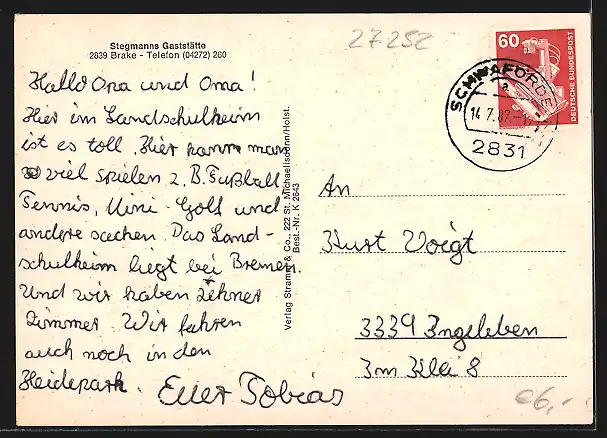 Stegmanns Gaststätte
2839 Brake - Telefon (04272) 260
Hallo Opa und Oma!
Hier im Landschulheim
ist es toll. Hier kann man
so viel spielen z. B. Fußball,
Tennis, Mini-Golf und
andere sachen. Das Land-
schulheim liegt bei Bremen.
Und wir haben zehner
Zimmer. Wir fahren
auch noch in den
Heidepark. Euer Tobias
Verlag Stramm & Co., 222 St. Michaelisdonn/Holst.
Best.-Nr. K 2643
27252
60
DEUTSCHE BUNDESPOST
SCHWAFÖRDEN
a
14.7.87.-17
2831
An
Kurt Voigt
3339 Ingeleben
Im Klei 8
€6,-